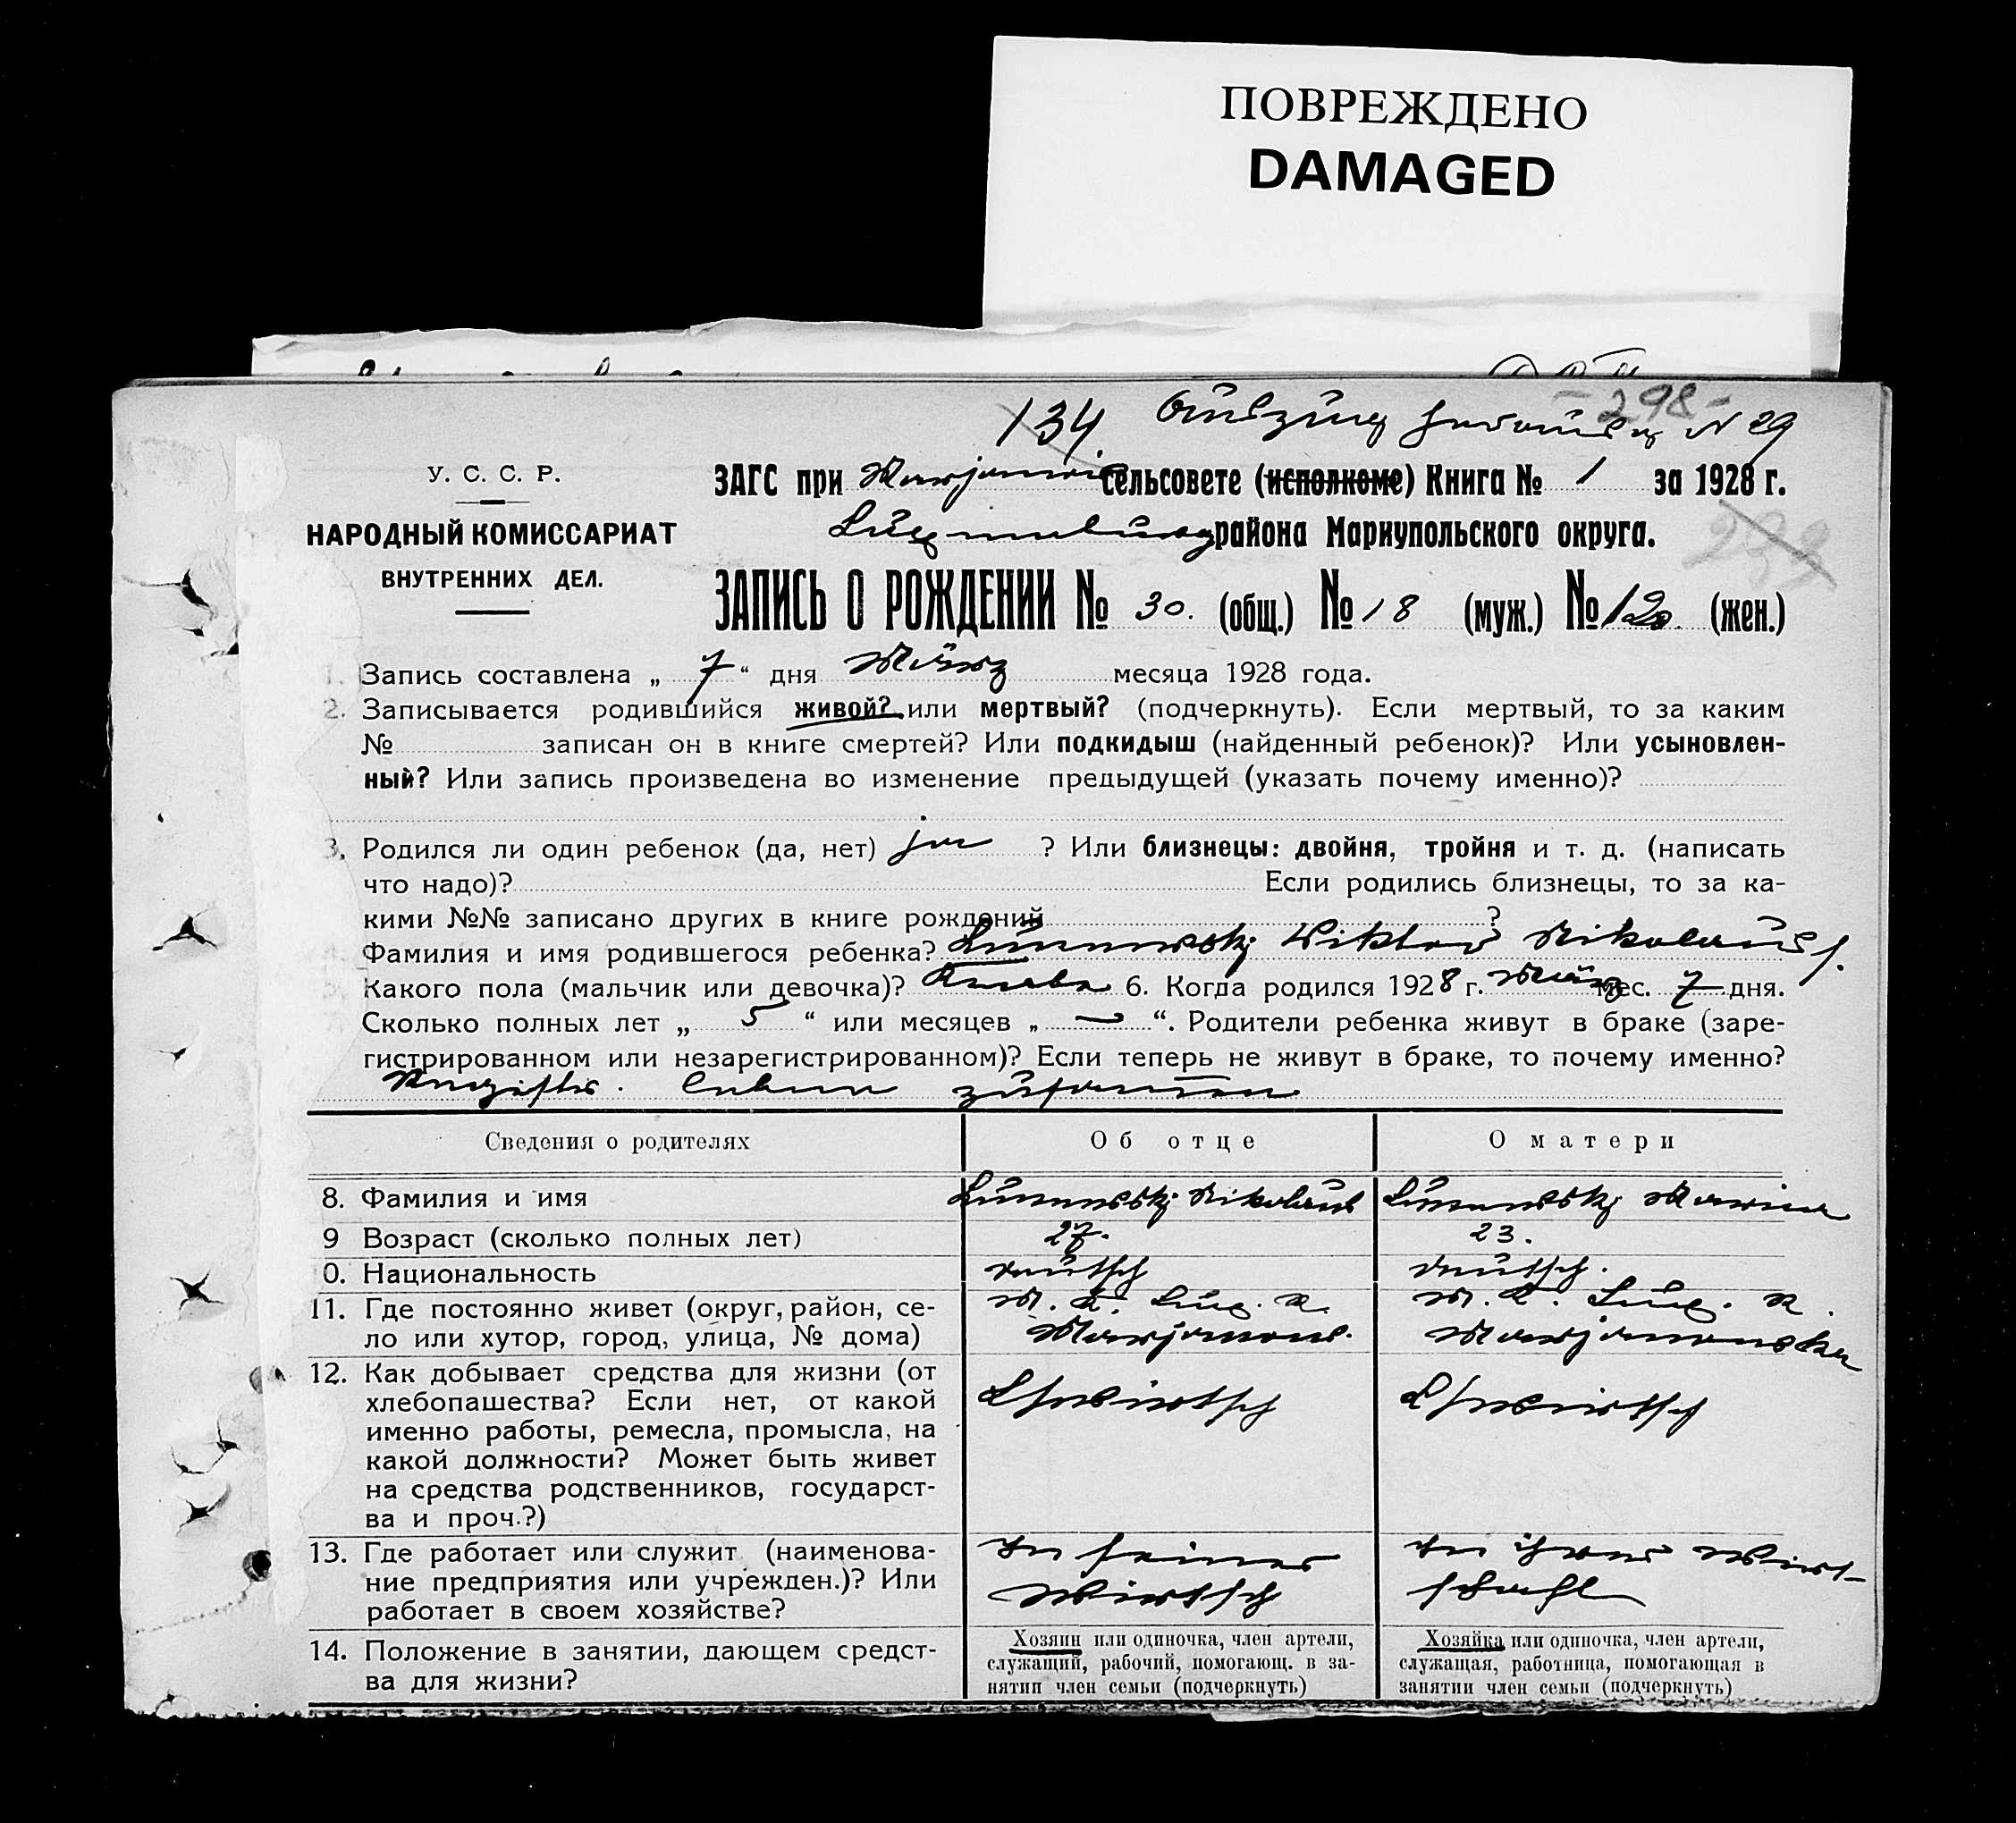 ПОВРЕЖДЕНО
DAMAGED
- 298 -
134 Auszug N 29
У. С. С. Р.
НАРОДНЫЙ КОМИССАРИАТ
ВНУТРЕННИХ ДЕЛ.
ЗАГС при сельсовете (исполкоме) Книга № 1 за 1928 г.
Luxemburg района Мариупольского округа.
ЗАПИСЬ О РОЖДЕНИИ № 30. (общ.) № 18 (муж.) № 12 (жен.)
1. Запись составлена „ 7 “ дня März месяца 1928 года.
2. Записывается родившийся живой? или мертвый? (подчеркнуть). Если мертвый, то за каким
№ записан он в книге смертей? Или подкидыш (найденный ребенок)? Или усыновлен-
ный? Или запись произведена во изменение предыдущей (указать почему именно)?
3. Родился ли один ребенок (да, нет) ja ? Или близнецы: двойня, тройня и т. д. (написать
что надо)? Если родились близнецы, то за ка-
кими №№ записано других в книге рождений ?
Фамилия и имя родившегося ребенка? Viktor Nikolaus
Какого пола (мальчик или девочка)? Knabe 6. Когда родился 1928 г. März мес. 7 дня.
Сколько полных лет „ 5 “ или месяцев „ — “. Родители ребенка живут в браке (заре-
гистрированном или незарегистрированном)? Если теперь не живут в браке, то почему именно?
Registr. leben zusammen
Сведения о родителях
Об отце
О матери
8. Фамилия и имя
Nikolaus
9 Возраст (сколько полных лет)
27.
23.
0. Национальность
deutsch
deutsch.
11. Где постоянно живет (округ, район, се-
ло или хутор, город, улица, № дома)
M. K. Lux. R.
Marjanow.
M. K. Lux. R.
12. Как добывает средства для жизни (от
хлебопашества? Если нет, от какой
именно работы, ремесла, промысла, на
какой должности? Может быть живет
на средства родственников, государст-
ва и проч.?)
13. Где работает или служит (наименова-
ние предприятия или учрежден.)? Или
работает в своем хозяйстве?
In seiner
Wirtsch
In ihrer Wirt-
schaft
14. Положение в занятии, дающем средст-
ва для жизни?
Хозяин или одиночка, член артели,
служащий, рабочий, помогающ. в за-
нятии член семьи (подчеркнуть)
Хозяйка или одиночка, член артели,
служащая, работница, помогающая в
занятии член семьи (подчеркнуть)